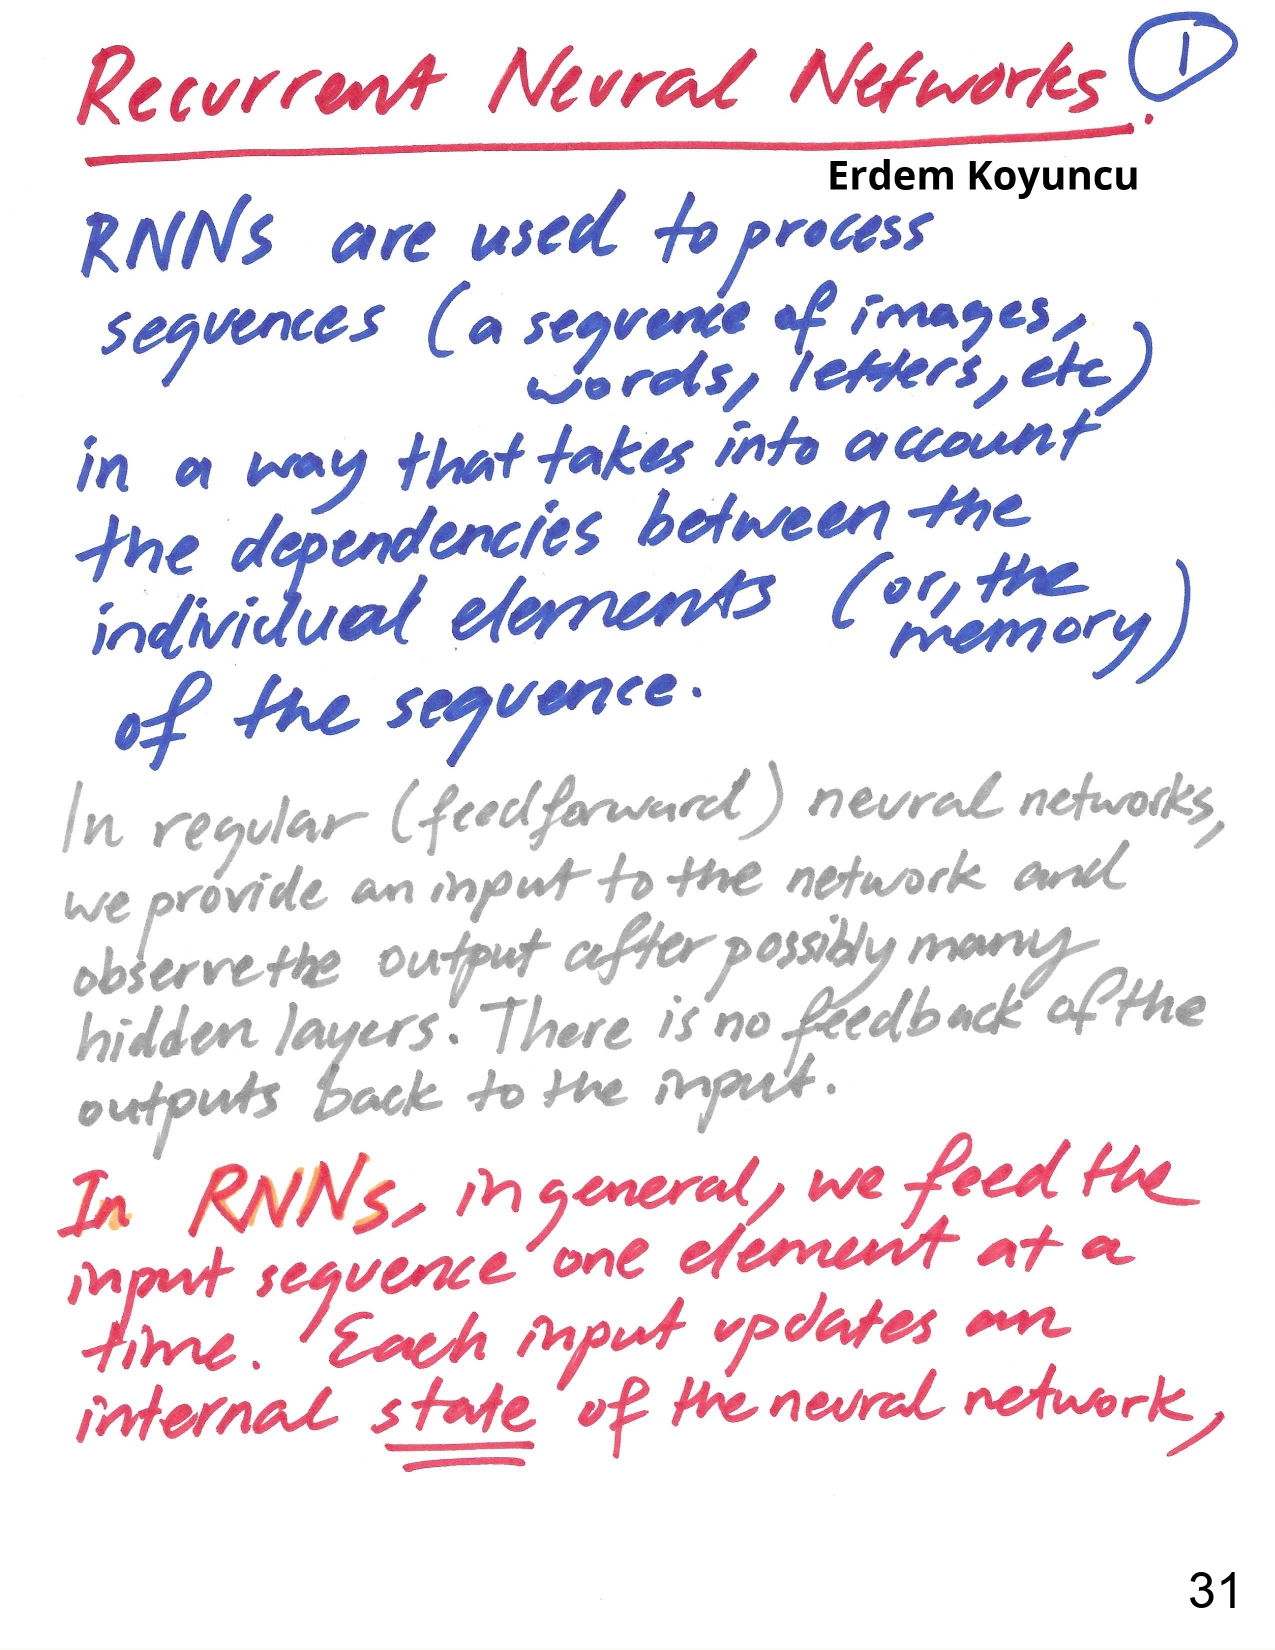 Recurrent Neural Networks.
1
Erdem Koyuncu
RNNs are used to process
sequences (a sequence of images,
words, letters, etc)
in a way that takes into account
the dependencies between the
individual elements (or, the
memory)
of the sequence.
In regular (feedforward) neural networks,
we provide an input to the network and
observe the output after possibly many
hidden layers. There is no feedback of the
outputs back to the input.
In RNNs, in general, we feed the
input sequence one element at a
time. Each input updates an
internal state of the neural network,
31